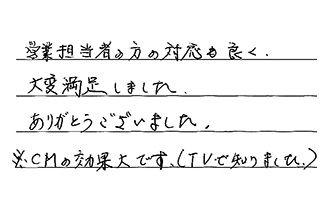 営業担当者の方の対応も良く.
大変満足しました.
ありがとうございました.
※CMの効果大です.(TVで知りました.)